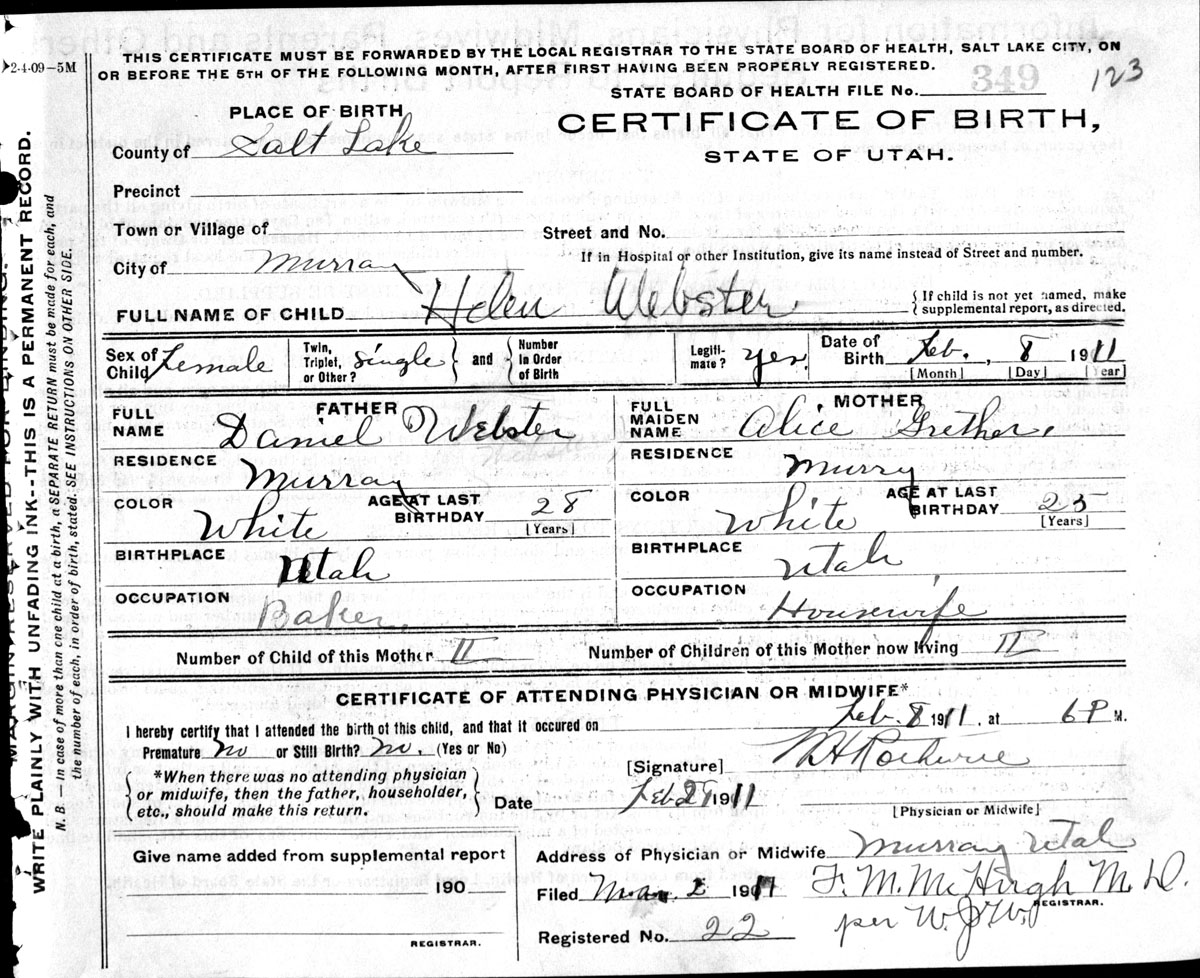 THIS CERTIFICATE MUST BE FORWARDED BY THE LOCAL REGISTRAR TO THE STATE BOARD OF HEALTH, SALT LAKE CITY, ON
2-4-09-5M
OR BEFORE THE 5TH OF THE FOLLOWING MONTH, AFTER FIRST HAVING BEEN PROPERLY REGISTERED.
349 123
STATE BOARD OF HEALTH FILE No.
PLACE OF BIRTH
CERTIFICATE OF BIRTH,
County of Salt Lake
STATE OF UTAH.
Precinct
Town or Village of
Street and No.
City of Murray
If in Hospital or other Institution, give its name instead of Street and number.
FULL NAME OF CHILD Helen Webster
{If child is not yet named, make
supplemental report, as directed.
Sex of Child Female
Twin, Triplet, or Other? single
and
Number in Order of Birth
Legitimate? yes.
Date of Birth Feb. 8 1911
[Month] [Day] [Year]
FATHER
FULL NAME Daniel Webster
RESIDENCE Murray
COLOR White
AGE AT LAST BIRTHDAY 28
[Years]
BIRTHPLACE Utah
OCCUPATION Baker.
MOTHER
FULL MAIDEN NAME Alice Grether.
RESIDENCE Murry
COLOR White
AGE AT LAST BIRTHDAY 25
[Years]
BIRTHPLACE Utah
OCCUPATION Housewife
Number of Child of this Mother II
Number of Children of this Mother now living II
CERTIFICATE OF ATTENDING PHYSICIAN OR MIDWIFE*
I hereby certify that I attended the birth of this child, and that it occured on Feb. 8 1911. at 6 P M.
Premature? no or Still Birth? no. (Yes or No)
*When there was no attending physician
or midwife, then the father, householder,
etc., should make this return.
[Signature]
Date Feb 1911
[Physician or Midwife]
Give name added from supplemental report
190
REGISTRAR.
Address of Physician or Midwife Murray Utah
Filed Mar. 2 191
F. M. McHugh M.D.
REGISTRAR.
per W.J.W.
Registered No. 22
MARGIN RESERVED FOR BINDING.
WRITE PLAINLY WITH UNFADING INK--THIS IS A PERMANENT RECORD.
N. B. — In case of more than one child at a birth, a SEPARATE RETURN must be made for each, and
the number of each, in order of birth, stated. SEE INSTRUCTIONS ON OTHER SIDE.